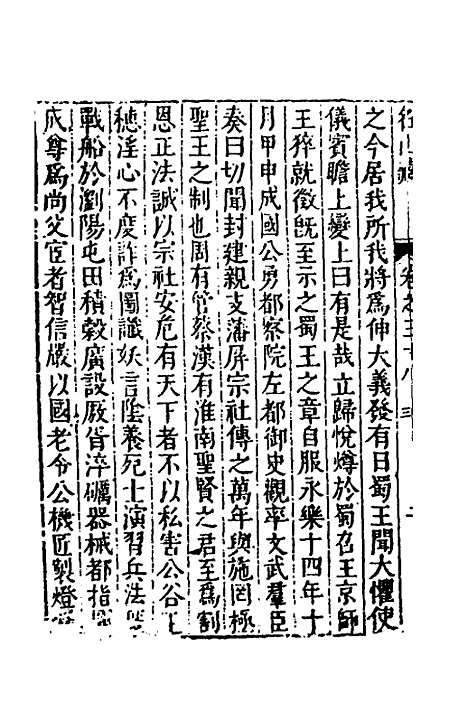 卷之三十八
之今居我所我將爲伸大義發有日蜀王聞大懼使
儀賓瞻上變上曰有是哉立歸悅燇於蜀召王京師
王猝就徵旣至示之蜀王之章自服永樂十四年十
月甲申成國公勇都察院左都御史觀率文武羣臣
奏曰切聞封建親支藩屏宗社傳之萬年與施罔極
聖王之制也周有管蔡漢有淮南聖賢之君至爲割
恩正法誠以宗社安危有天下者不以私害公谷王
橞淫心不度詐爲圖讖妖言陰養死士演習兵法
戰船於瀏陽屯田積穀廣設厰胥淬礪器械都指
成尊爲尚父宦者智信嚴以國老令公機匠製燈